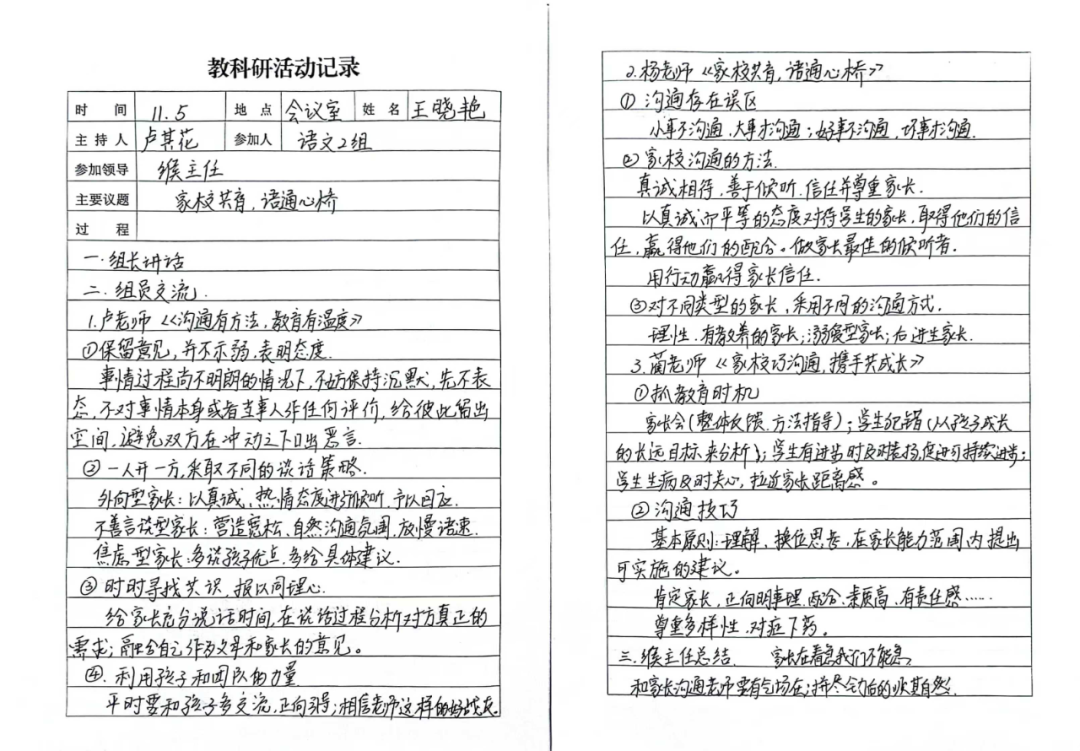 教科研活动记录
时 间 11.5 地 点 会议室 姓 名 王晓艳
主 持 人 卢其花 参加人 语文2组
参加领导 缑主任
主要议题 家校共育,语通心桥
过 程
一.组长讲话
二.组员交流.
1.卢老师《沟通有方法,教育有温度》
①保留意见,并不示弱,表明态度.
事情过程尚不明朗的情况下,不妨保持沉默,先不表
态,不对事情本身或者当事人作任何评价,给彼此留出
空间,避免双方在冲动之下口出恶言.
②一人开一方,采取不同的谈话策略.
外向型家长:以真诚、热情态度进行倾听,予以回应.
不善言谈型家长:营造宽松、自然沟通氛围,放慢语速.
焦虑型家长:多谈孩子优点,多给具体建议.
③时时寻找共识,报以同理心.
给家长充分说话时间,在谈话过程分析对方真正的
需求;融合自己作为父母和家长的意见。
④.利用孩子和团队的力量
平时要和孩子多交流,正向引导;相信老师这样的好战友.
2.杨老师《家校共育,语通心桥》
①沟通存在误区
小事不沟通、大事才沟通;好事不沟通,坏事才沟通.
②家校沟通的方法.
真诚相待,善于倾听.信任并尊重家长.
以真诚而平等的态度对待学生的家长,取得他们的信
任,赢得他们的配合。做家长最佳的倾听者.
用行动赢得家长信任.
③对不同类型的家长,采用不同的沟通方式.
理性、有教养的家长;溺爱型家长;后进生家长.
3.蔺老师《家校巧沟通,携手共成长》
①抓教育时机
家长会(整体反馈、方法指导);学生犯错(从孩子成长
的长远目标来分析);学生有进步时及时表扬,促进可持续进步;
学生生病及时关心,拉近家长距离感。
②沟通技巧
基本原则:理解、换位思考,在家长能力范围内提出
可实施的建议。
肯定家长,正向明事理、配合、素质高、有责任感……
尊重多样性,对症下药。
三.缑主任总结. 家长在着急我们不能急.
和家长沟通老师要有气场在;拼尽全力后的顺其自然.